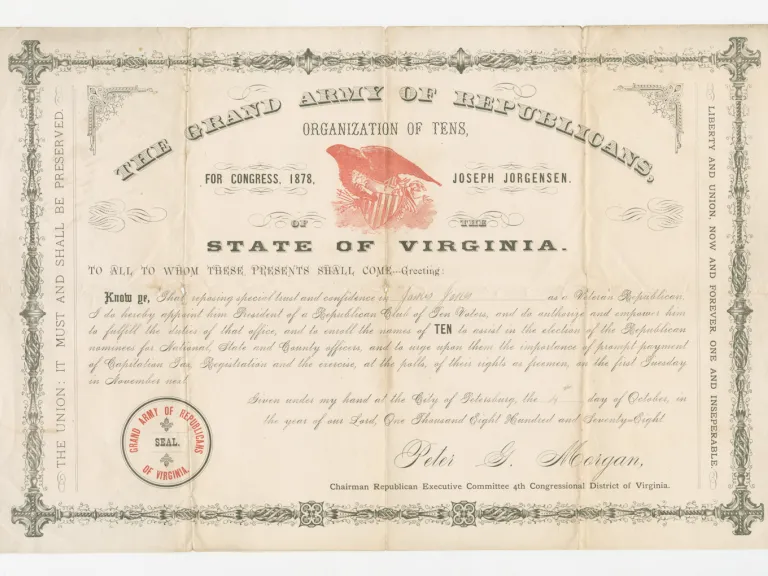 THE GRAND ARMY OF REPUBLICANS,
ORGANIZATION OF TENS,
FOR CONGRESS, 1878,
JOSEPH JORGENSEN.
OF THE
STATE OF VIRGINIA.
TO ALL TO WHOM THESE PRESENTS SHALL COME--Greeting:
Know ye, That reposing special trust and confidence in James Jones as a Veteran Republican
I do hereby appoint him President of a Republican Club of Ten Voters, and do authorize and empower him
to fulfill the duties of that office, and to enroll the names of TEN to assist in the election of the Republican
nominees for National, State and County officers, and to urge upon them the importance of prompt payment
of Capitation Tax, Registration and the exercise, at the polls, of their rights as freemen, on the first Tuesday
in November next.
Given under my hand at the City of Petersburg, the day of October, in
the year of our Lord, One Thousand Eight Hundred and Seventy-Eight
Peter G. Morgan,
Chairman Republican Executive Committee 4th Congressional District of Virginia.
GRAND ARMY OF REPUBLICANS
SEAL.
OF VIRGINIA.
THE UNION: IT MUST AND SHALL BE PRESERVED.
LIBERTY AND UNION, NOW AND FOREVER, ONE AND INSEPERABLE.